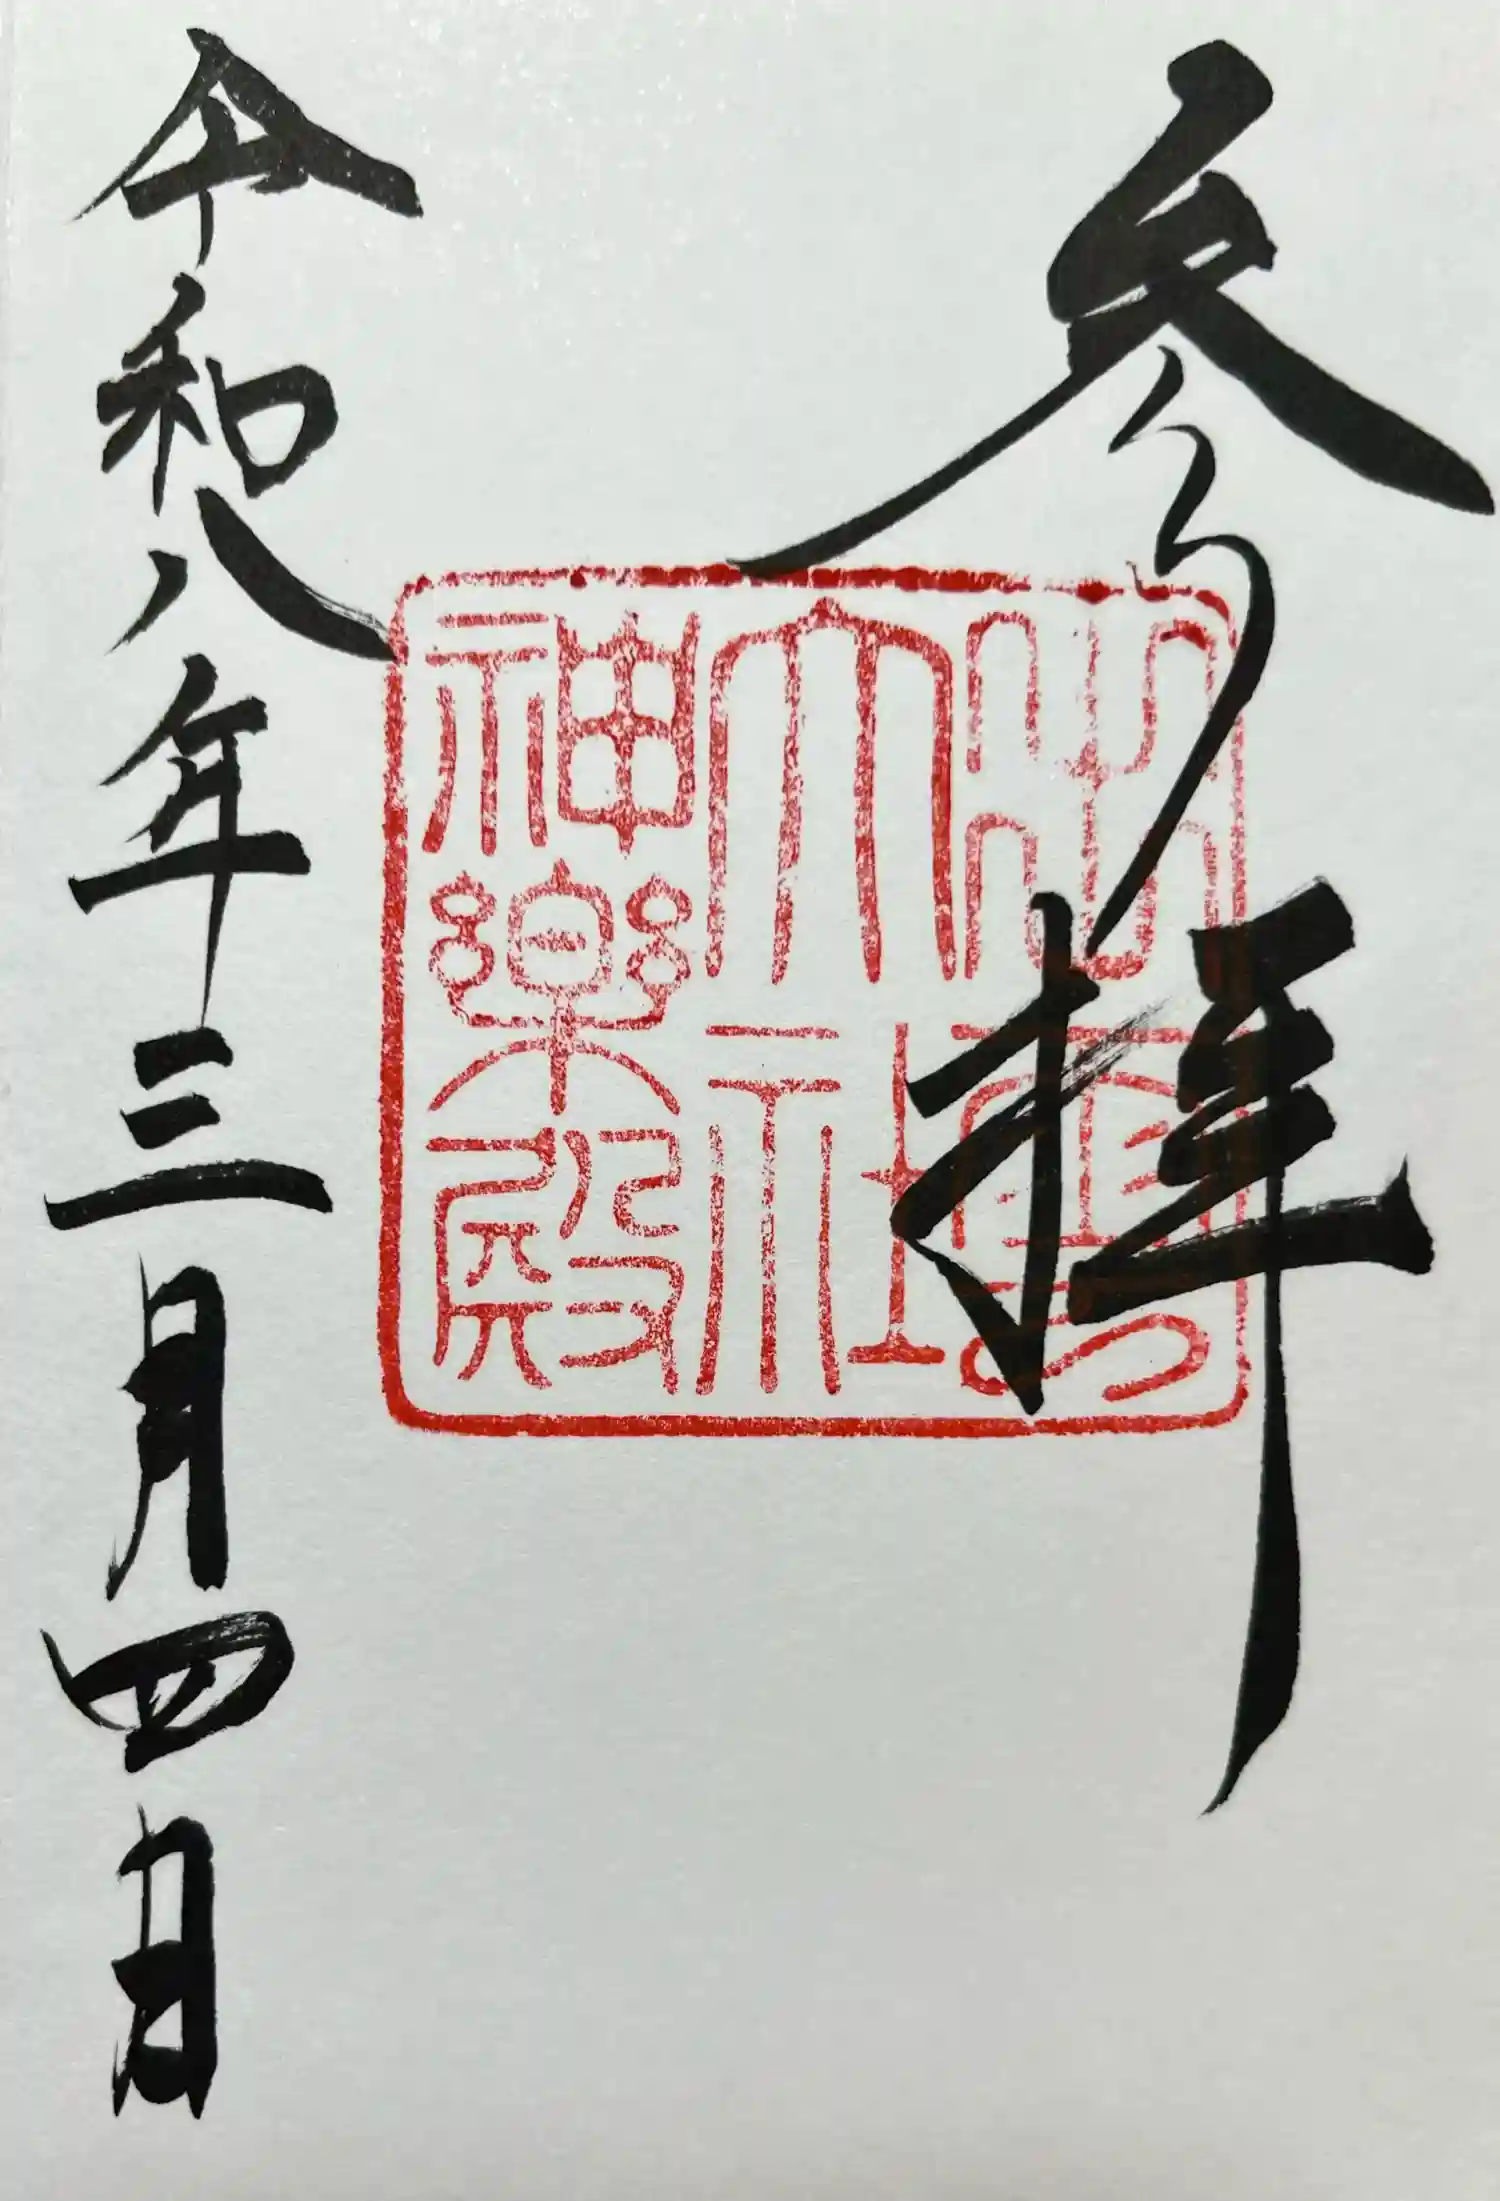 参拝
出雲
大社
神樂殿
令和八年三月四日